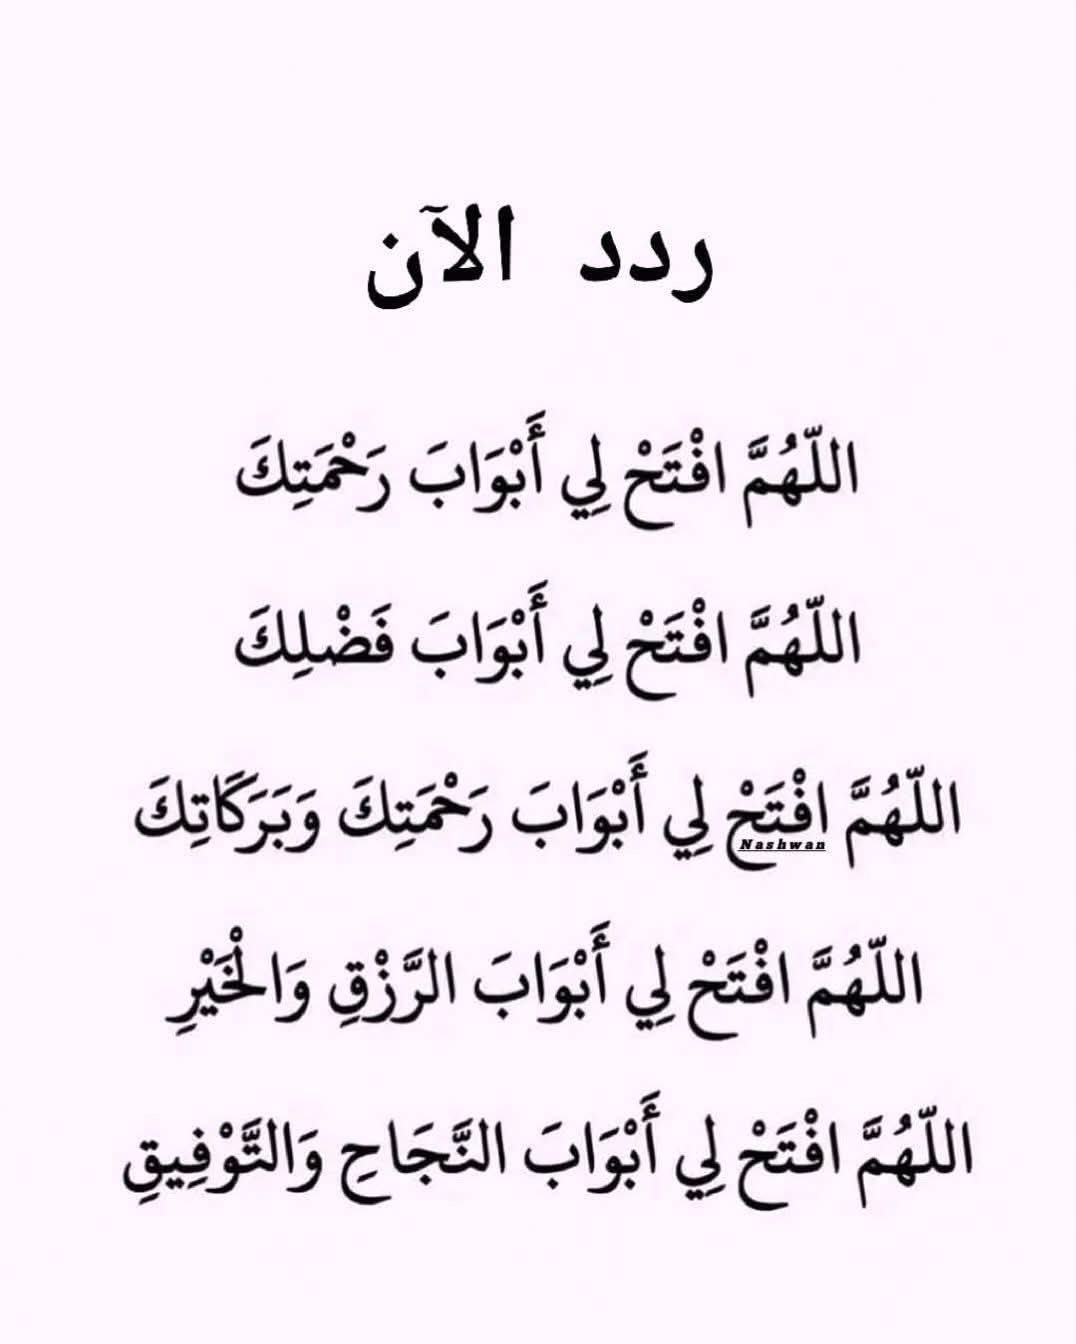 ردد الآن
اللّهُمَّ افْتَحْ لِي أَبْوَابَ رَحْمَتِكَ
اللّهُمَّ افْتَحْ لِي أَبْوَابَ فَضْلِكَ
اللّهُمَّ افْتَحْ لِي أَبْوَابَ رَحْمَتِكَ وَبَرَكَاتِكَ
Nashwan
اللّهُمَّ افْتَحْ لِي أَبْوَابَ الرَّزْقِ وَالْخَيْرِ
اللّهُمَّ افْتَحْ لِي أَبْوَابَ النَّجَاحِ وَالتَّوْفِيقِ